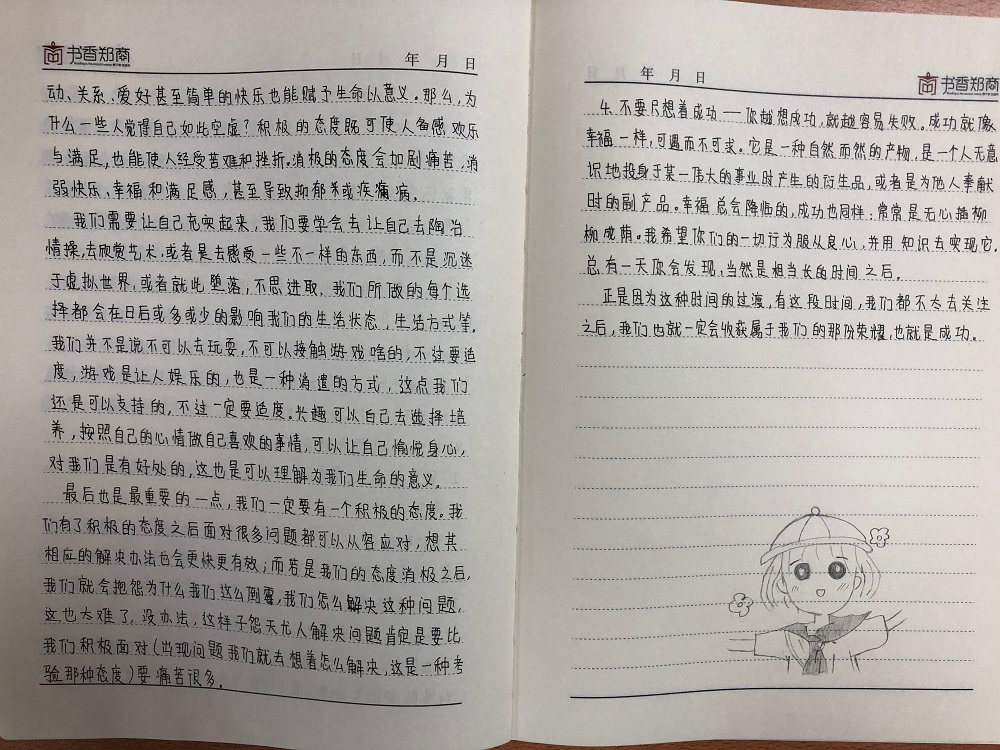 书香郑商
年 月 日
动、关系、爱好甚至简单的快乐也能赋予生命以意义。那么,为
什么一些人觉得自己如此空虚?积极的态度既可使人备感欢乐
与满足,也能使人经受苦难和挫折。消极的态度会加剧痛苦,消
弱快乐、幸福和满足感,甚至导致抑郁系或疾痛病。
我们需要让自己充实起来,我们要学会去让自己去陶冶
情操,去欣赏艺术,或者是去感受一些不一样的东西,而不是沉迷
于虚拟世界,或者就此堕落,不思进取。我们所做的每个选
择都会在日后或多或少的影响我们的生活状态,生活方式等,
我们并不是说不可以去玩耍,不可以接触游戏啥的,不过要适
度,游戏是让人娱乐的,也是一种消遣的方式,这点我们
还是可以支持的,不过一定要适度。兴趣可以自己去选择培
养,按照自己的心情做自己喜欢的事情,可以让自己愉悦身心,
对我们是有好处的,这也是可以理解为我们生命的意义。
最后也是最重要的一点,我们一定要有一个积极的态度。我
们有了积极的态度之后面对很多问题都可以从容应对,想其
相应的解决办法也会更快更有效;而若是我们的态度消极之后,
我们就会抱怨为什么我们这么倒霉,我们怎么解决这种问题,
这也太难了,没办法,这样子怨天尤人解决问题肯定是要比
我们积极面对(当现问题我们就去想着怎么解决,这是一种考
验那种态度)要痛苦很多。
年 月 日
书香郑商
4.不要只想着成功——你越想成功,就越容易失败。成功就像
幸福一样,可遇而不可求。它是一种自然而然的产物,是一个人无意
识地投身于某一伟大的事业时产生的衍生品,或者是为他人奉献
时的副产品。幸福总会降临的,成功也同样:常常是无心插柳
柳成荫。我希望你们的一切行为服从良心,并用知识去实现它。
总有一天你会发现,当然是相当长的时间之后。
正是因为这种时间的过渡,有这段时间,我们都不太去关注
之后,我们也就一定会收获属于我们的那份荣耀,也就是成功。